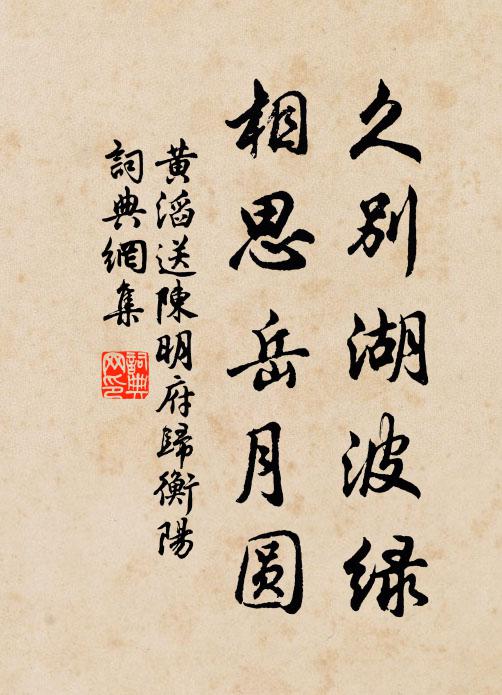 久别湖波緑
相思岳月圆
黃滔送陳明府歸衡陽
詞典網集
詞典
网印